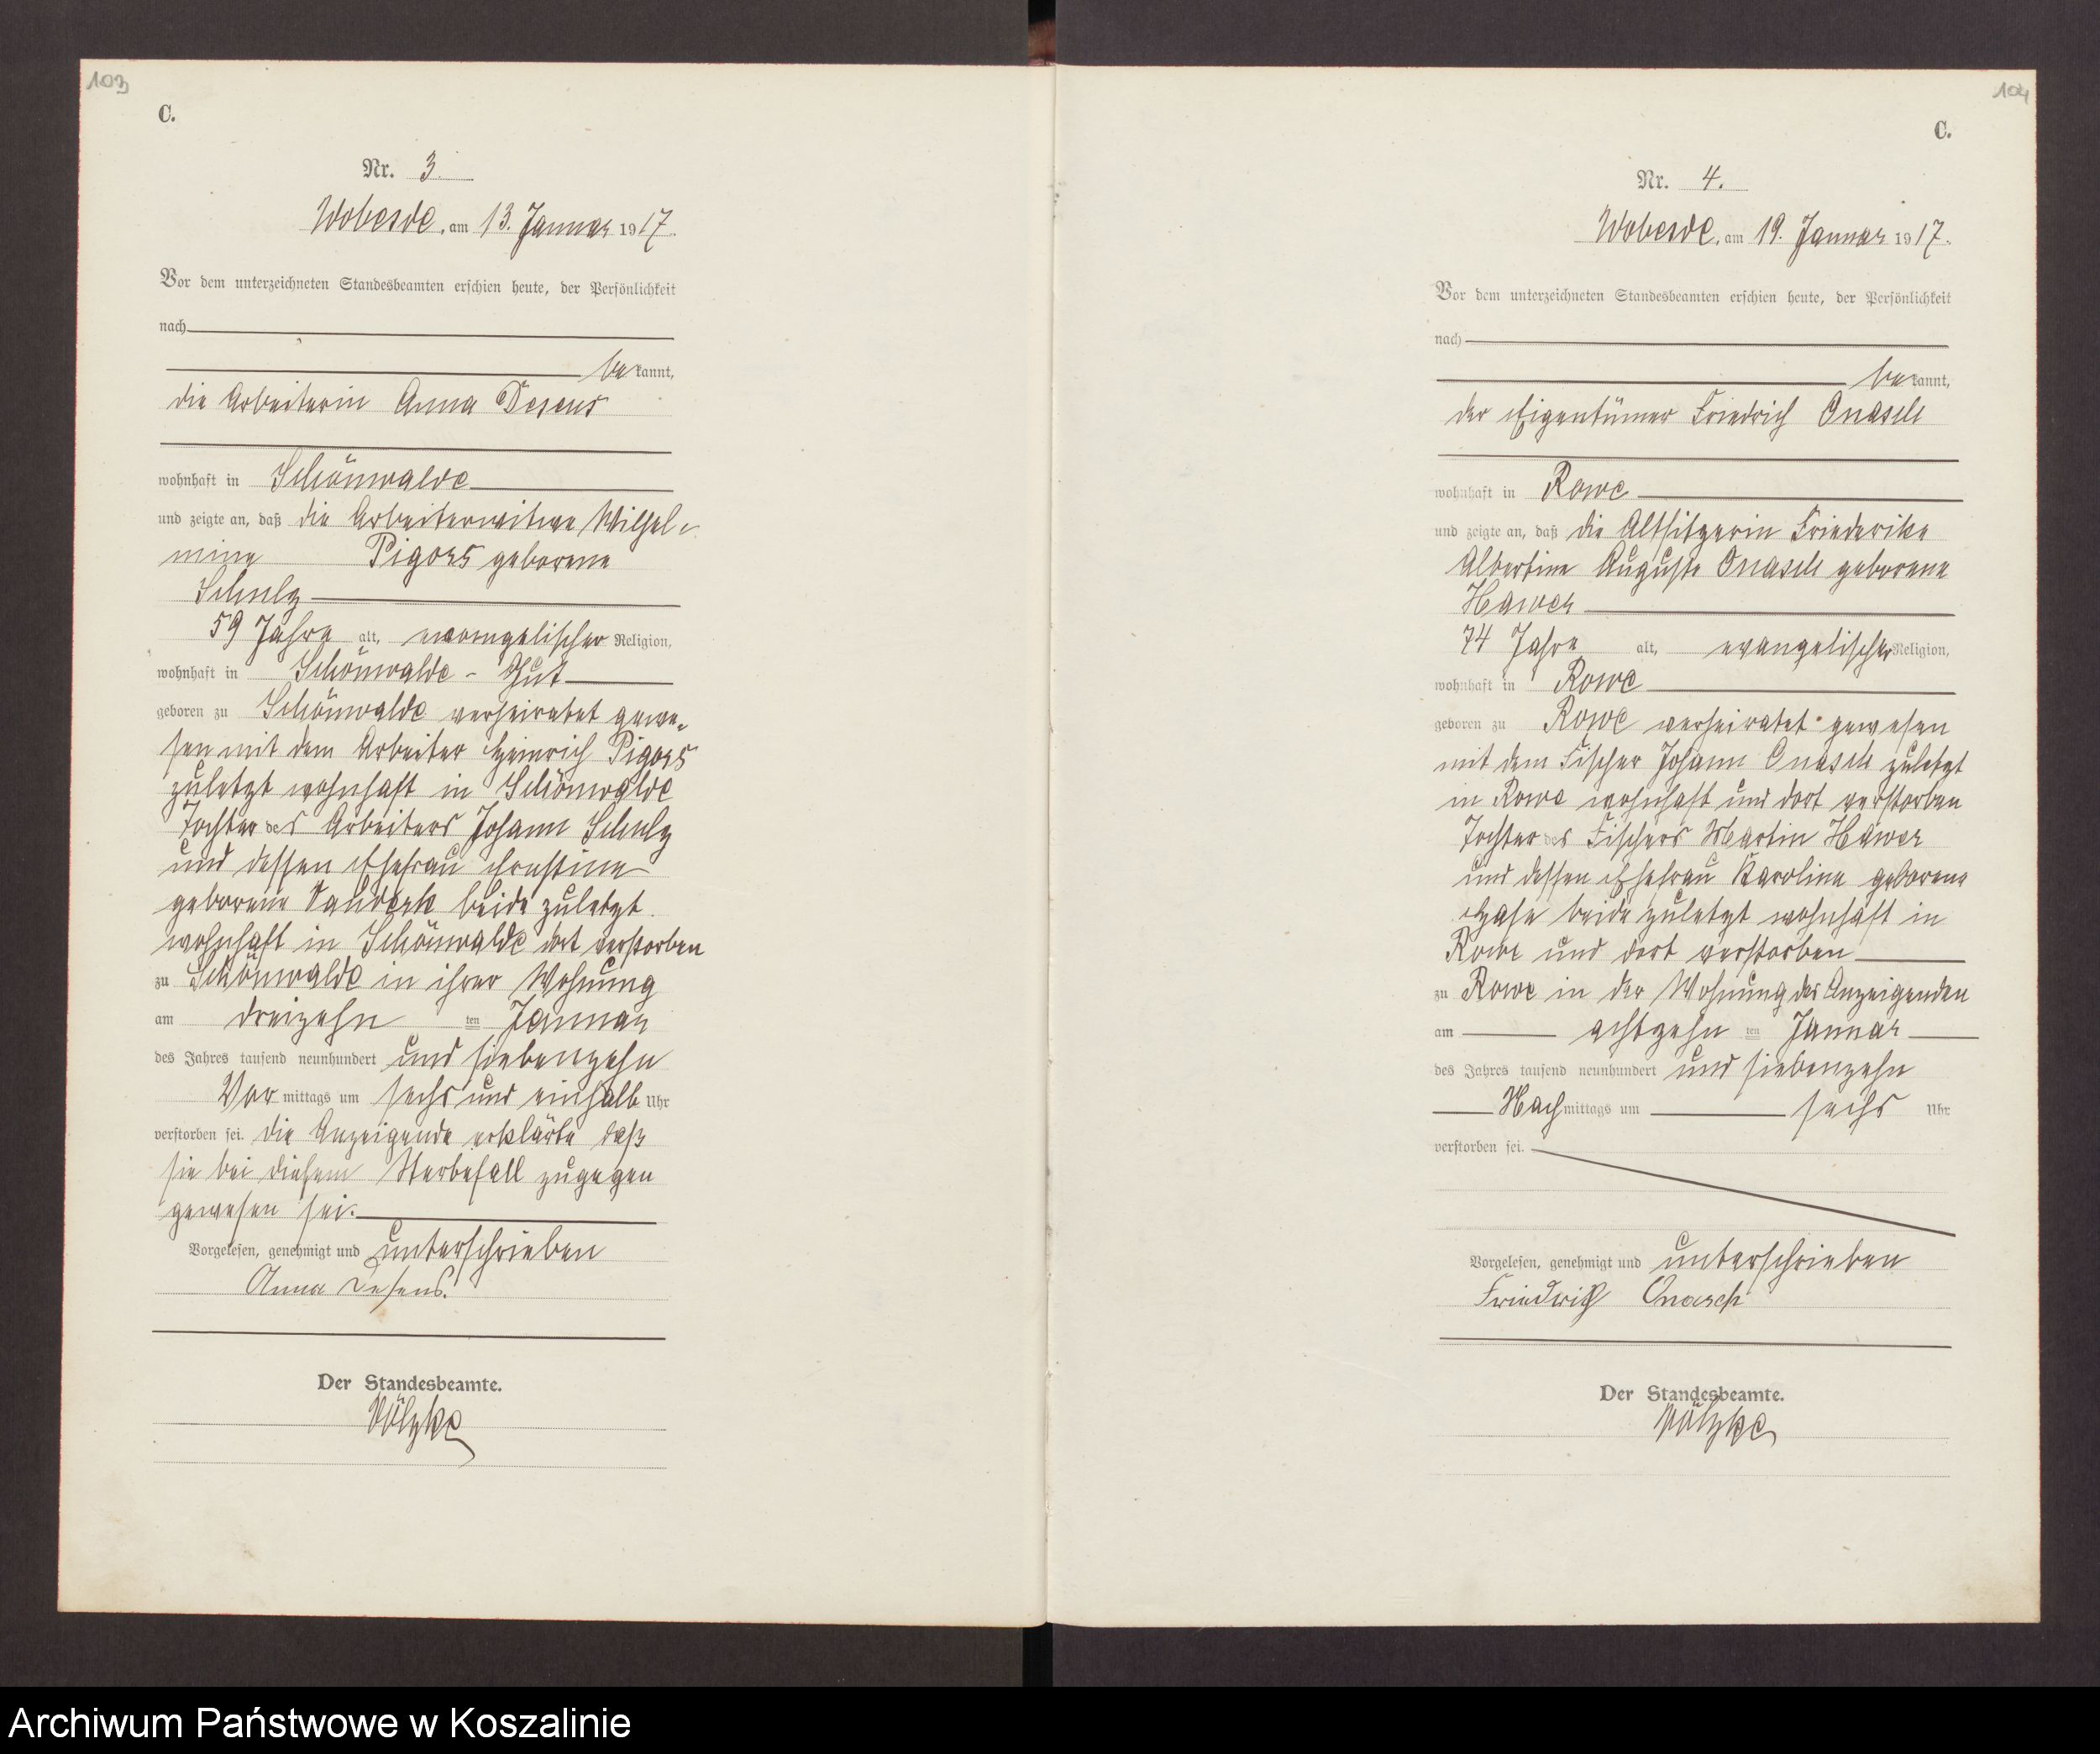 103
C.
Nr. 3.
Wobesde, am 13. Januar 1917.
Vor dem unterzeichneten Standesbeamten erschien heute, der Persönlichkeit
nach
bekannt,
die Arbeiterin Anna Desens
wohnhaft in Schönwalde
und zeigte an, daß die Arbeiterwitwe Wilhel-
mine Pigors geborene
Schulz
59 Jahre alt, evangelischer Religion,
wohnhaft in Schönwalde - Gut
geboren zu Schönwalde verheiratet gewe-
sen mit dem Arbeiter Heinrich Pigors
zuletzt wohnhaft in Schönwalde
Tochter des Arbeiters Johann Schulz
und dessen Ehefrau Ernstine
geborene beide zuletzt
wohnhaft in Schönwalde dort verstorben
zu Schönwalde in ihrer Wohnung
am dreizehn ten Januar
des Jahres tausend neunhundert und siebenzehn
Vor mittags um sechs und einhalb Uhr
verstorben sei. Die Anzeigende erklärte daß
sie bei diesem Sterbefall zugegen
gewesen sei.
Vorgelesen, genehmigt und unterschrieben
Anna Desens.
Der Standesbeamte.
Völzke
104
C.
Nr. 4.
Wobesde, am 19. Januar 1917.
Vor dem unterzeichneten Standesbeamten erschien heute, der Persönlichkeit
nach
bekannt,
der Eigentümer Friedrich Onasch
wohnhaft in Rowe
und zeigte an, daß die Altsitzerin Friederike
Albertine Auguste Onasch geborene
Hawer
74 Jahre alt, evangelischer Religion,
wohnhaft in Rowe
geboren zu Rowe verheiratet gewesen
mit dem Fischer Johann Onasch zuletzt
in Rowe wohnhaft und dort verstorben
Tochter des Fischers Martin Hawer
und dessen Ehefrau Karoline geborene
beide zuletzt wohnhaft in
Rowe und dort verstorben
zu Rowe in der Wohnung des Anzeigenden
am achtzehn ten Januar
des Jahres tausend neunhundert und siebenzehn
Nach mittags um sechs Uhr
verstorben sei.
Vorgelesen, genehmigt und unterschrieben
Friedrich Onasch
Der Standesbeamte.
Völzke
Archiwum Państwowe w Koszalinie